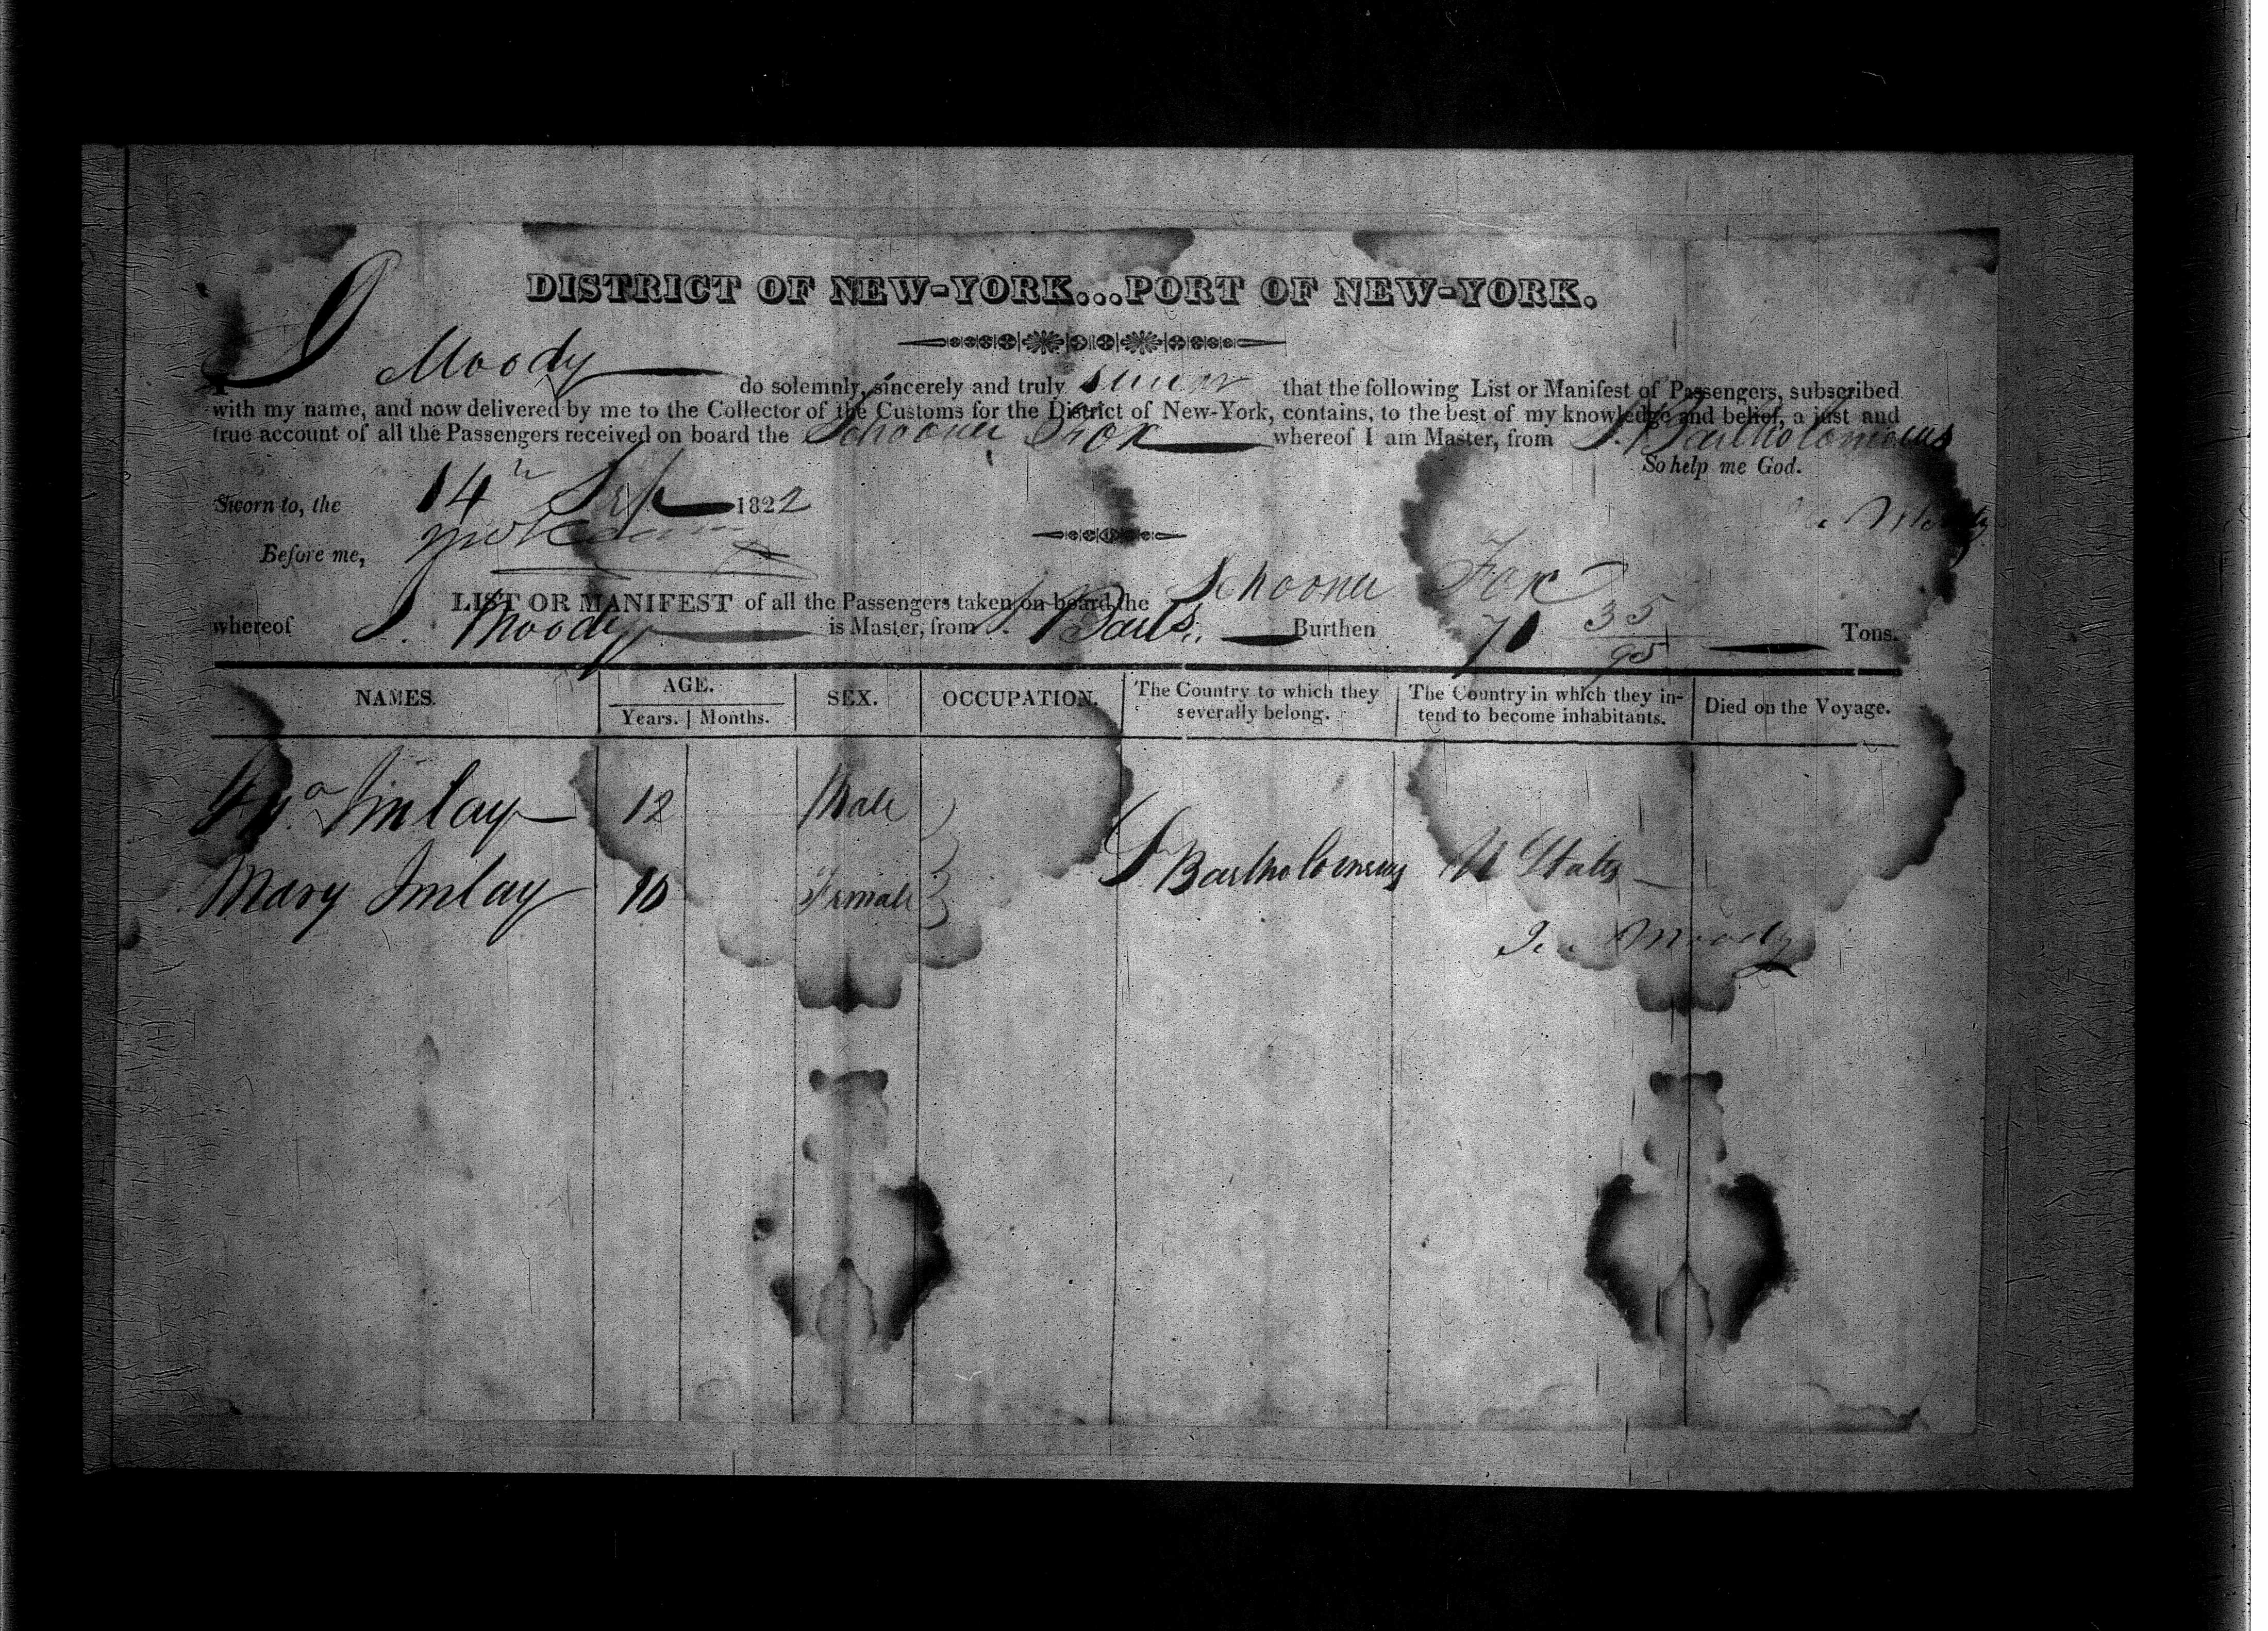 DISTRICT OF NEW-YORK...PORT OF NEW-YORK.
I Moody do solemnly, sincerely and truly swear that the following List or Manifest of Passengers, subscribed
with my name, and now delivered by me to the Collector of the Customs for the District of New-York, contains, to the best of my knowledge and belief, a just and
true account of all the Passengers received on board the Schooner Fox whereof I am Master, from St. Bartholomews
So help me God.
Sworn to, the 14th Sep 1822
Moody
Before me,
LIST OR MANIFEST of all the Passengers taken on board the Schooner Fox
whereof J. Moody is Master, from St. Barts. Burthen 71 35/95 Tons.
NAMES. AGE. SEX. OCCUPATION. The Country to which they severally belong. The Country in which they intend to become inhabitants. Died on the Voyage.
Years. Months.
Imlay 12 Male
St Bartholomews U States
Mary Imlay 10 Female
Moody